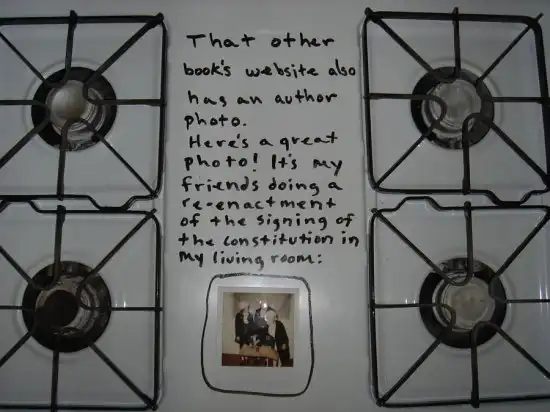 That other
book's website also
has an author
photo.
Here's a great
photo! It's my
friends doing a
re-enactment
of the signing of
the constitution in
my living room: